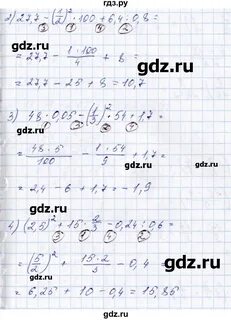 гдз.ру
2) 27,7 - (1/2)² · 100 + 6,4 : 0,8 =
= 27,7 - 1·100/4 + 8 =
= 27,7 - 25 + 8 = 10,7
3) 48 · 0,05 - (1/3)² · 54 + 1,7 =
= 48·5/100 - 1·54/9 + 1,7 =
= 2,4 - 6 + 1,7 = -1,9
4) (2,5)² + 15 · 2/3 - 0,24 : 0,6 =
= (5/2)² + 15·2/3 - 0,4 =
= 6,25 + 10 - 0,4 = 15,85
гдз.ру